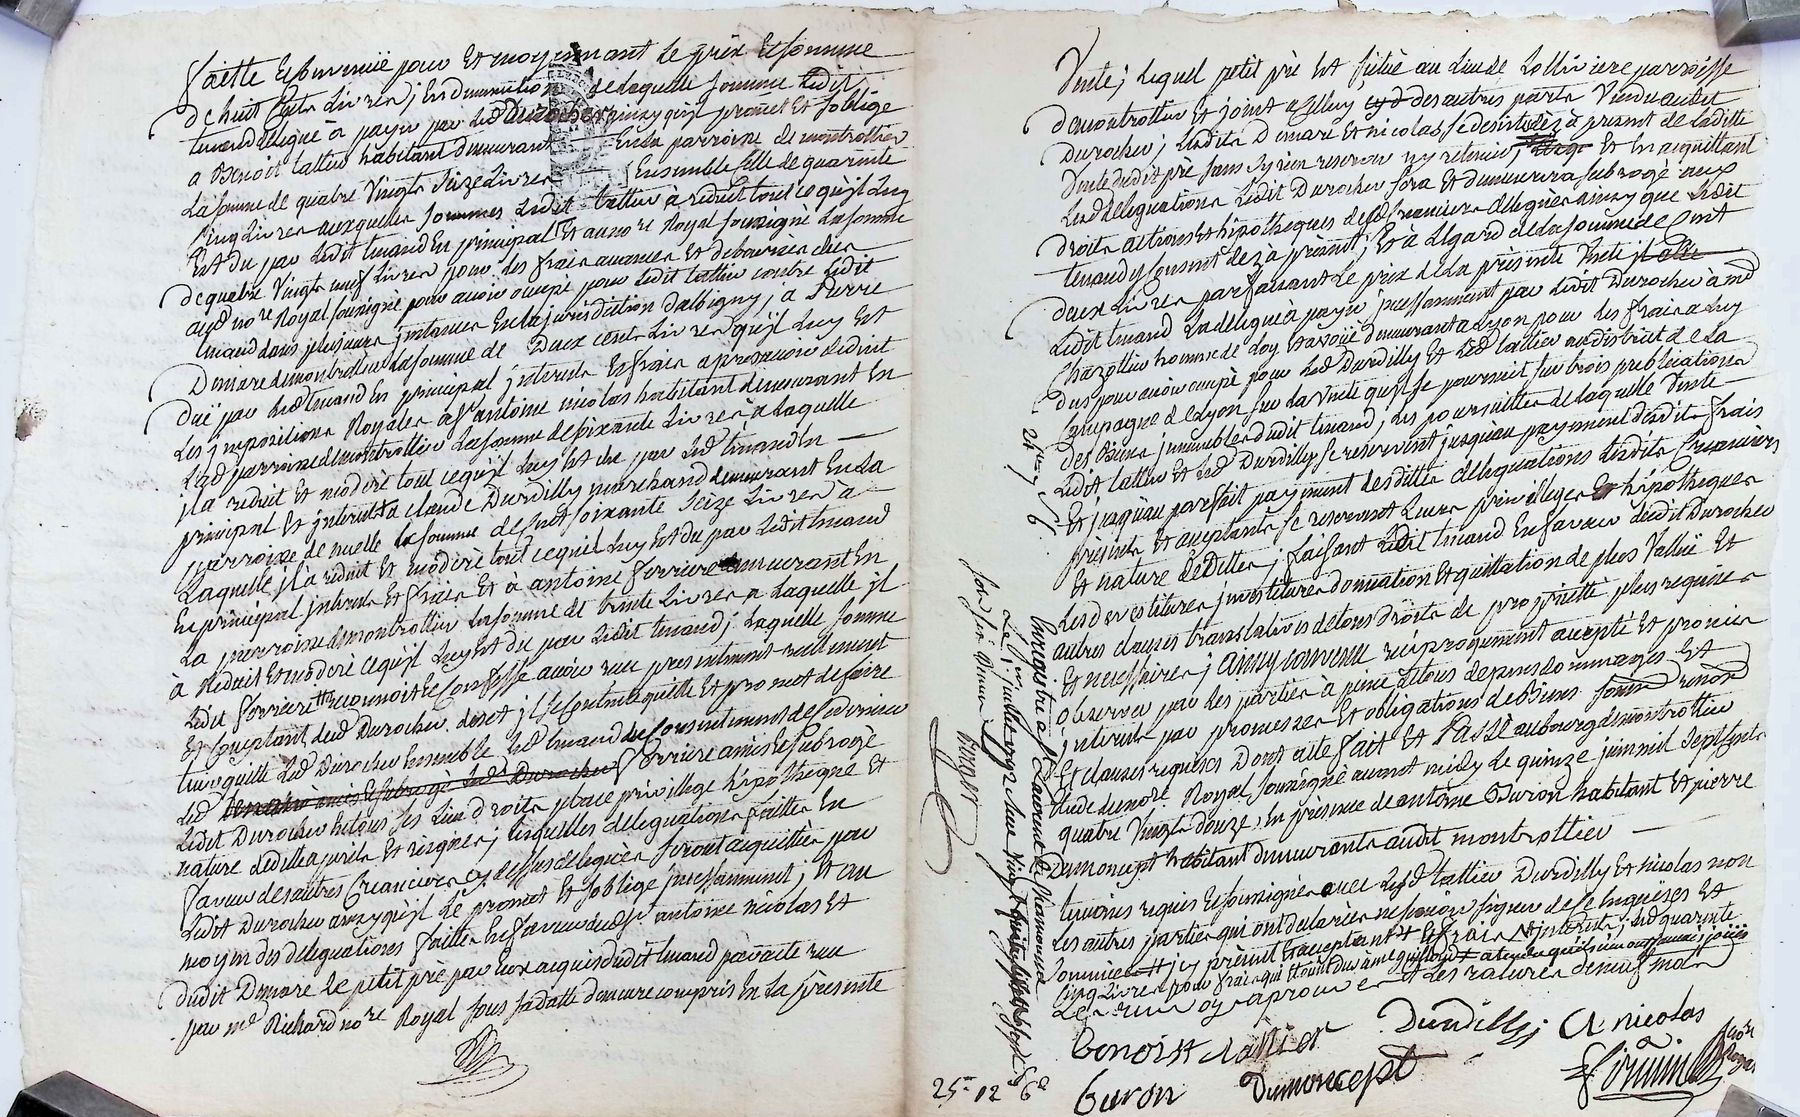 faitte Et Convenüe pour Et moyennant le prix Et somme
de huit Cents Livres; En diminution de laquelle somme ledit
tenaud delegue à payer par led Durocher ainsy qu'il promet Et s'oblige
a Benoit tallieu habitant demeurant En la parroisse de montrottier
la somme de quatre Vingts Seize Livres Ensemble Celle de quarante
Cinq Livres auxquelles sommes ledit tallieu à reduit tout ce qu'il luy
Est du par ledit tenaud En principal Et au nore Royal soussigné la somme
de quatre Vingts neuf Livres pour les frais avances Et debourses dues
aud nore Royal soussigné pour avoir occupé pour ledit tallieu contre ledit
tenaud dans plusieurs jnstances En la jurisdiction dalbigny; à Pierre
Demare de montrottier la somme de Deux cents Livres qu'il luy Est
due par led tenaud En principal jnterets Et frais apres avoir deduit
les jmpositions Royales à sr antoine nicolas habitant demeurant En
lad parroisse de montrottier la somme de soixante Livres à laquelle
jl a reduit Et moderé tout ce qu'il luy Est du par led tenaud En
principal Et jnterets a claude Durdilly marchand demeurant En la
parroisse de nuelle la somme de soixante Seize Livres à
laquelle jl à reduit Et moderé tout ce qu'il luy Est du par ledit tenaud
En principal jnterets Et frais Et à antoine ferriere demeurant En
la parroisse de montrottier la somme de trente Livres a laquelle jl
à reduit Et moderé ce qu'il luy Est du par ledit tenaud; laquelle somme
ledit ferriere reconnoit Et Confesse avoir reçu presentement reellement
Et Comptant dud Durocher dont jl se Contente quitte Et promet de faire
tenir quitte led Durocher Ensemble led tenaud du Consentement de ce dernier
led ferriere a mis Et subrogé
ledit Durocher En tous ses Lieu droits place privillege hÿpotheque Et
nature dedittes jcelles delegations faittes En
faveur des autres Creanciers cy dessus delegués seront acquittées par
ledit Durocher ainsy qu'il le promet Et s'oblige jncessamment; Et au
moyen des delegations faittes En faveur dud sr antoine nicolas Et
dudit Demare le petit pré par Eux acquis dudit tenaud par acte reçu
par me Richard nore Royal sous sa datte demeure compris En la presente
Vente; lequel petit pré Est situé au lieu de Lolliviere parroisse
de montrottier Et joint a Celuy des autres parts Vendu audit
Durocher; lesdits Demare Et nicolas se desistent dez à present de laditte
Vente dudit pré sans y rien reserver ny retenir; Et En acquittant
lesd delegations ledit Durocher sera Et demeurera subrogé aux
droits actions Et hipotheques desd Creanciers delegués ainsy que ledit
tenaud y Consent dez à present; Et à L'Egard de la somme de Cent
deux Livres parfaisant le prix de la presente Vente
ledit tenaud la delegue à payer jncessamment par ledit Durocher à mr
Chazottier homme de Loy Et avoüé demeurant a Lyon pour les frais a luy
dus pour avoir occupé pour led Durdilly Et led tallieu au district de la
Campagne de Lyon sur la Vente qu'ils se poursuit sur trois publications
des Biens jmmeubles dudit tenaud; les poursuittes de laquelle Vente
ledit tallieu Et led Durdilly se reservent jusqu'au payement desdits frais
Et jusqu'au parfait payement desdittes delegations lesdits Creanciers
presents Et acceptants se reservent leurs privilleges Et hÿpotheques
Et nature dedittes; faisant ledit tenaud En faveur dudit Durocher
les devestitures jnvestitures donnation Et quittation de plus Vallüe Et
autres clauses translatives de tous droits de proprietté plus requises
Et necessaires; ainsy convenu réciproquement accepté Et promis
observer par les parties à peine de tous depens dommages Et
jnterets par promesses Et obligations de Biens soumis renon
Et clauses requises Dont acte fait Et PASSÉ au bourg de montrottier
Etude du nore Royal soussigné avant midy le quinze juin mil sept cents
quatre Vingts douze, En presence de antoine Buron habitant Et pierre
Dumoncept habitant demeurants audit montrottier
temoins requis Et soussignés avec lesd tallieu Durdilly Et nicolas non
les autres parties qui ont declarés ne sçavoir signer de ce Enquises Et
sommées
cinq Livres pour frais qui Etoient dus
Benoist tallieu Durdilly A nicolas
Buron Dumoncept
25s 12 s 6d
Enregistré a st Laurent de Chamousset